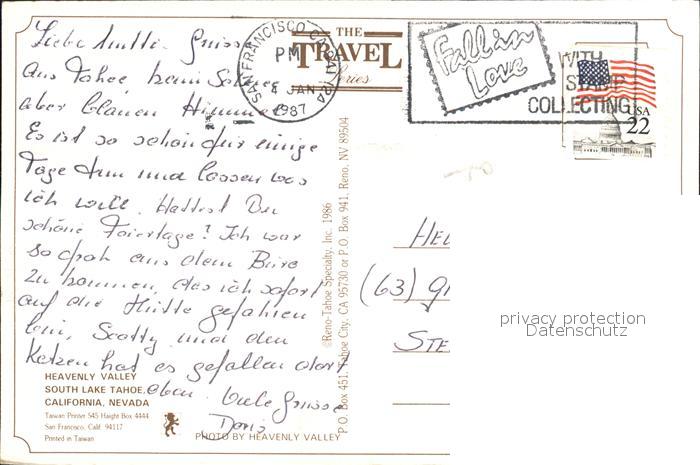 Liebe Mutti - Grüsse
aus Tahoe, beim Schnee
aber blauen Himmel
Es ist so schön für einige
Tage tun und lassen was
ich will. Hattest Du
schöne Feiertage? Ich war
so froh aus dem Büro
zu kommen, das ich sofort
auf die Hütte gefahren
bin, Scotty und den
Katzen hat es gefallen dort
oben. Viele Grüsse
Doris
HEAVENLY VALLEY
SOUTH LAKE TAHOE,
CALIFORNIA, NEVADA
Taiwan Printer 545 Haight Box 4444
San Francisco, Calif. 94117
Printed in Taiwan
PHOTO BY HEAVENLY VALLEY
©Reno-Tahoe Specialty, Inc. 1986
P.O. Box 451, Tahoe City, CA 95730 or P.O. Box 941, Reno, NV 89504
THE
TRAVEL
Series
SAN FRANCISCO CA
PM
JAN
1987
Fall in
Love
WITH
STAMP
COLLECTING
USA
22
HEL
(63) GI
STE
privacy protection
Datenschutz